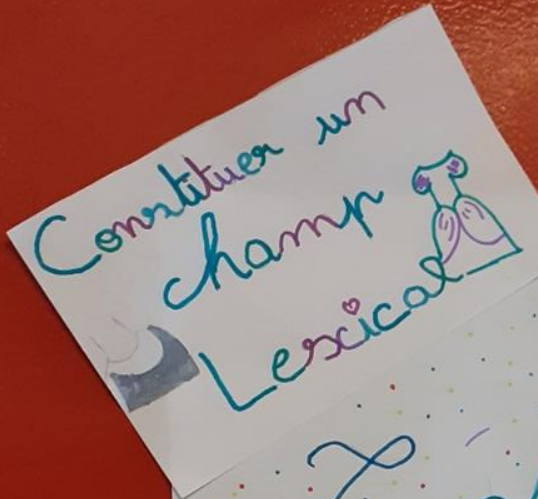 Constituer un
champ
Lexical